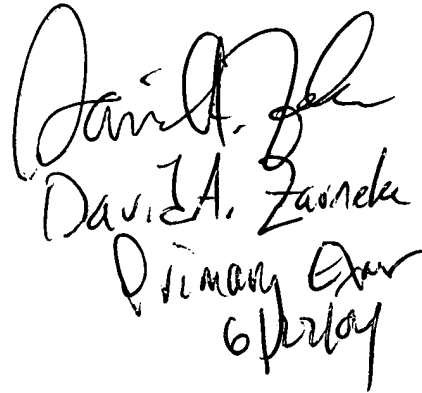 David A. Zarneke
David A. Zarneke
Primary Exmr
6/12/04